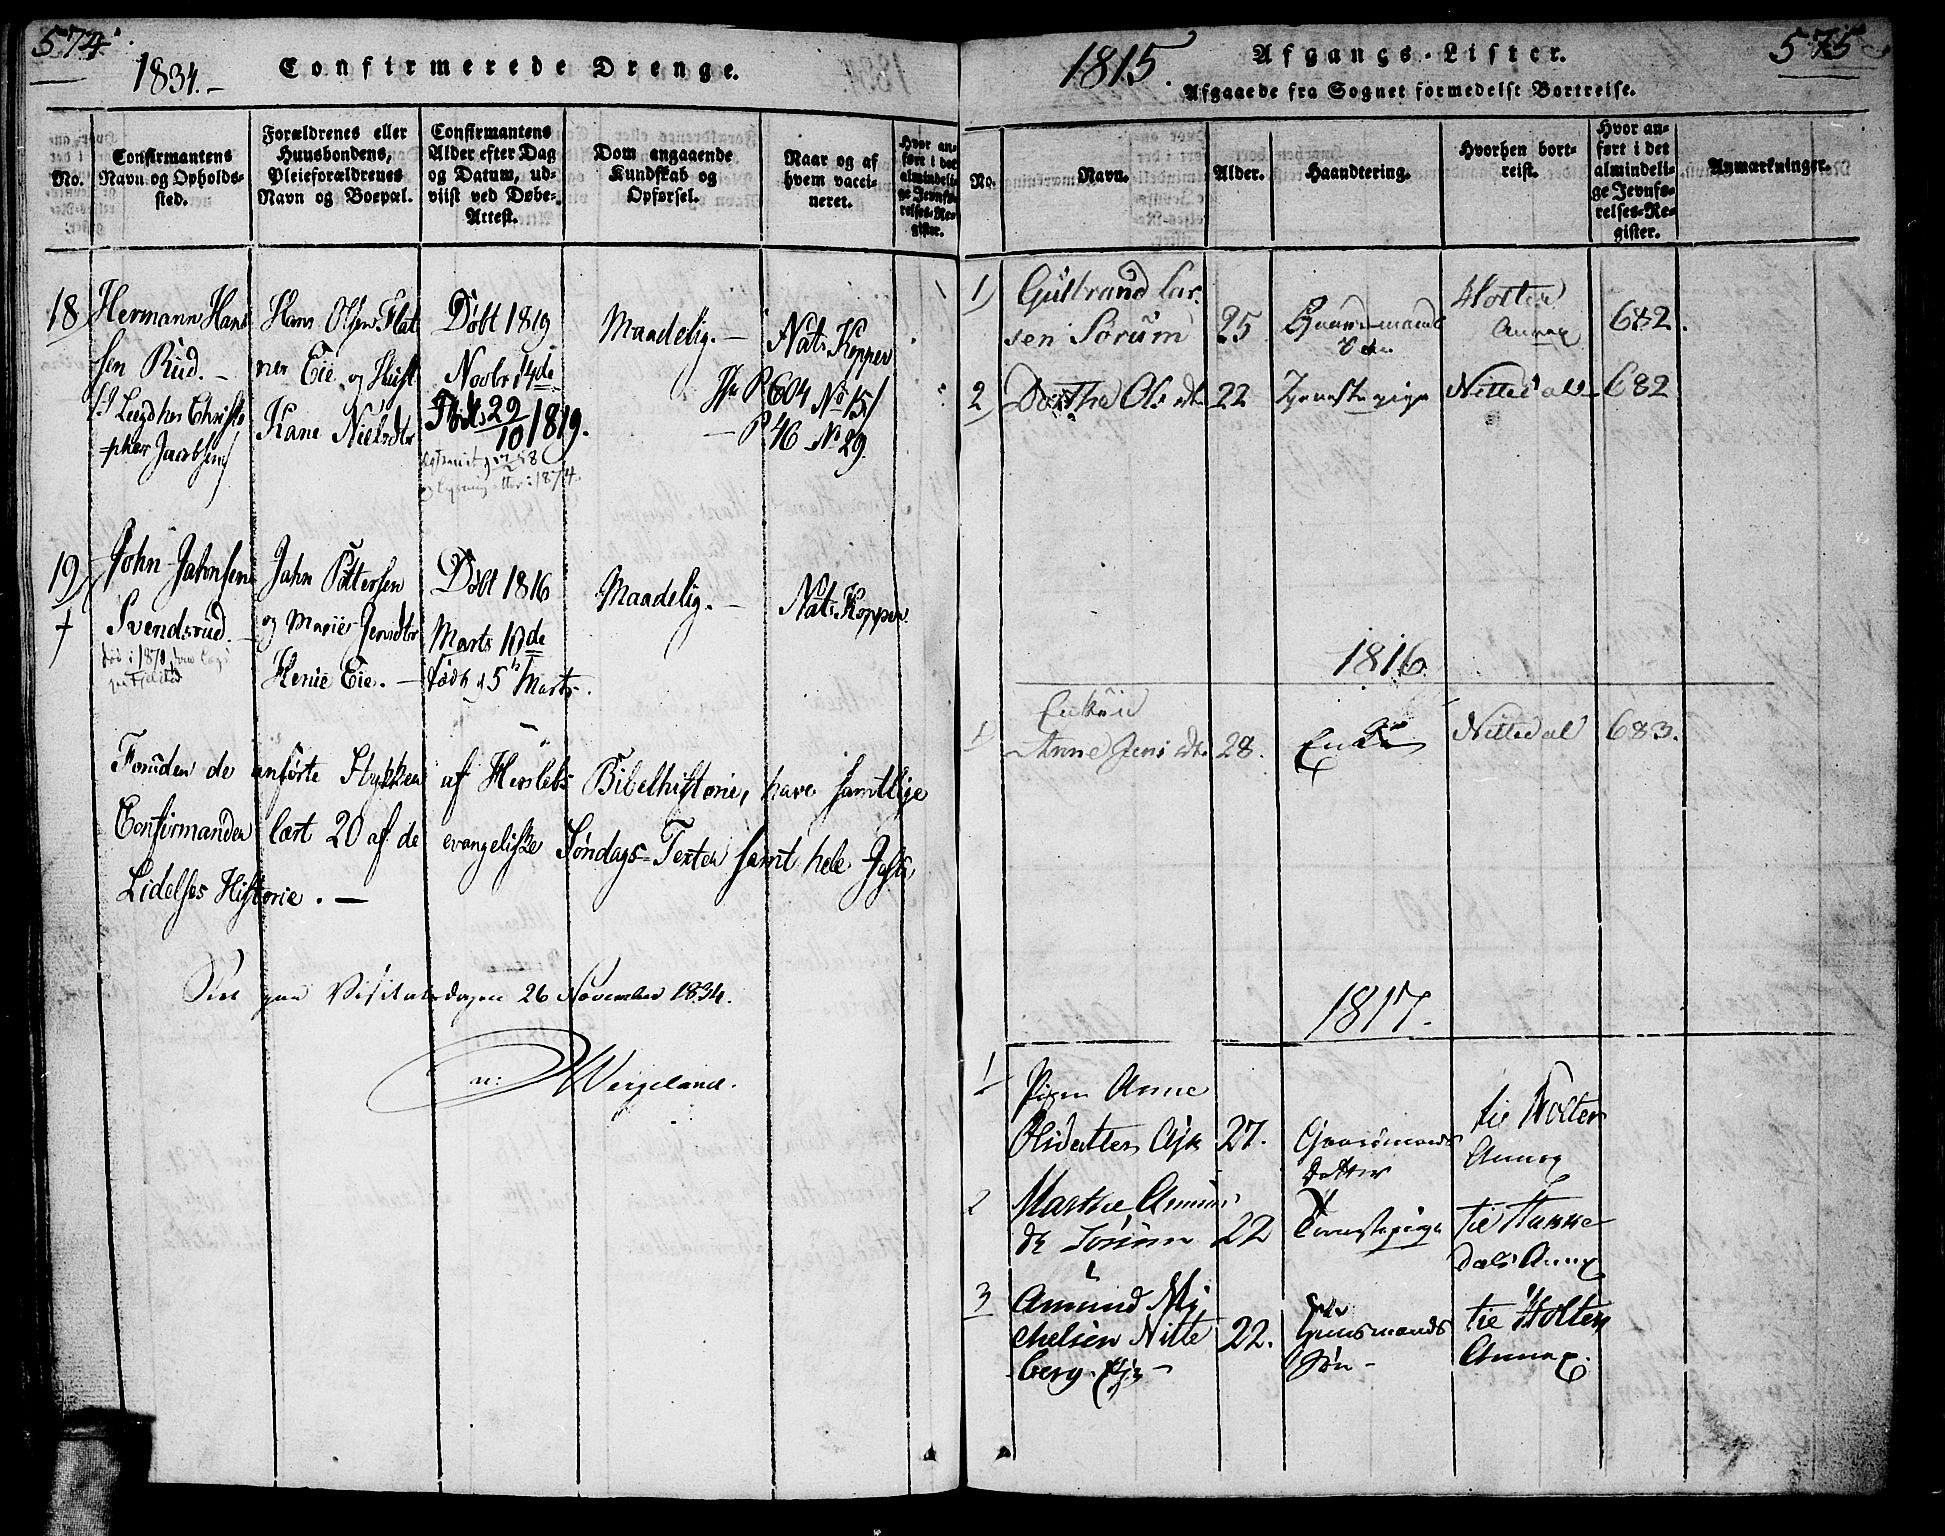 574.
1834.–
Confirmerede Drenge.
No.
Confirmantens
Navn og Opholds-
sted.
Forældrenes eller
Huusbondens,
Pleieforældrenes
Navn og Boepæl.
Confirmantens
Alder efter Dag
og Datum, ud-
viist ved Døbe-
Attest.
Dom angaaende
Kundskab og
Opførsel.
Naar og af
hvem vacci-
neret.
Hvor an-
ført i det
almindeli-
ge Jevnfø-
relses-Re-
gister.
18
Hermann Han
sen Rud. –
Christo
pher Jacobsen
Hans Olsen Flat
ner Eie og Hust
Kane Nielsdtr
Døbt 1819
Novbr 14de
Født 29/10 1819.
i 1874.
Maadelig. –
Nat. Kopper
P 604 No 15/
– P 46 No 29.
19
†
John Jahnsen
Svendsrud.
død i 1870
Jahn Pettersen
og Marie Jensdtr
Henie Eie. –
Døbt 1816
Marts 10de
født d 5 Marts.
Maadelig. –
Nat. Kopper.
Foruden de anførte Stykker af Herslebs Bibelhistorie, have samtlige
Confirmander lært 20 af de evangeliske Søndags-Texter samt hele Jesu
Lidelses Historie. –
Seet paa Visitatsdagen 26 November 1834.
n: Wergeland.
1815.
Afgangs-Lister.
575
Afgaaede fra Sognet formedelst Bortreise.
No.
Navn.
Alder.
Haandtering.
Hvorhen bort-
reist.
Hvor an-
ført i det
almindeli-
ge Jevnfø-
relses-Re-
gister.
Anmærkninger.
1)
Gulbrand Lar-
sen Sørum
25
Gaardmands
Holter
Annex
682.
2)
Dorthe Ols dt.
22
Tjenestepige
Nittedal
682
1816.
1)
Enken
Anne Jens dt.
28.
Enke
Nittedal
683.
1817.
1
Pigen Anne
Olsdatter Ask
27.
Gaardmands
Datter
til Holter
Annex
2
Marthe Amun
dt Sørum
22
Tienestepige
til
dals Annex
3
Amund Mi
chelsen Nitte
berg.
22.
Huusmands
Søn –
til Holter
Annex.